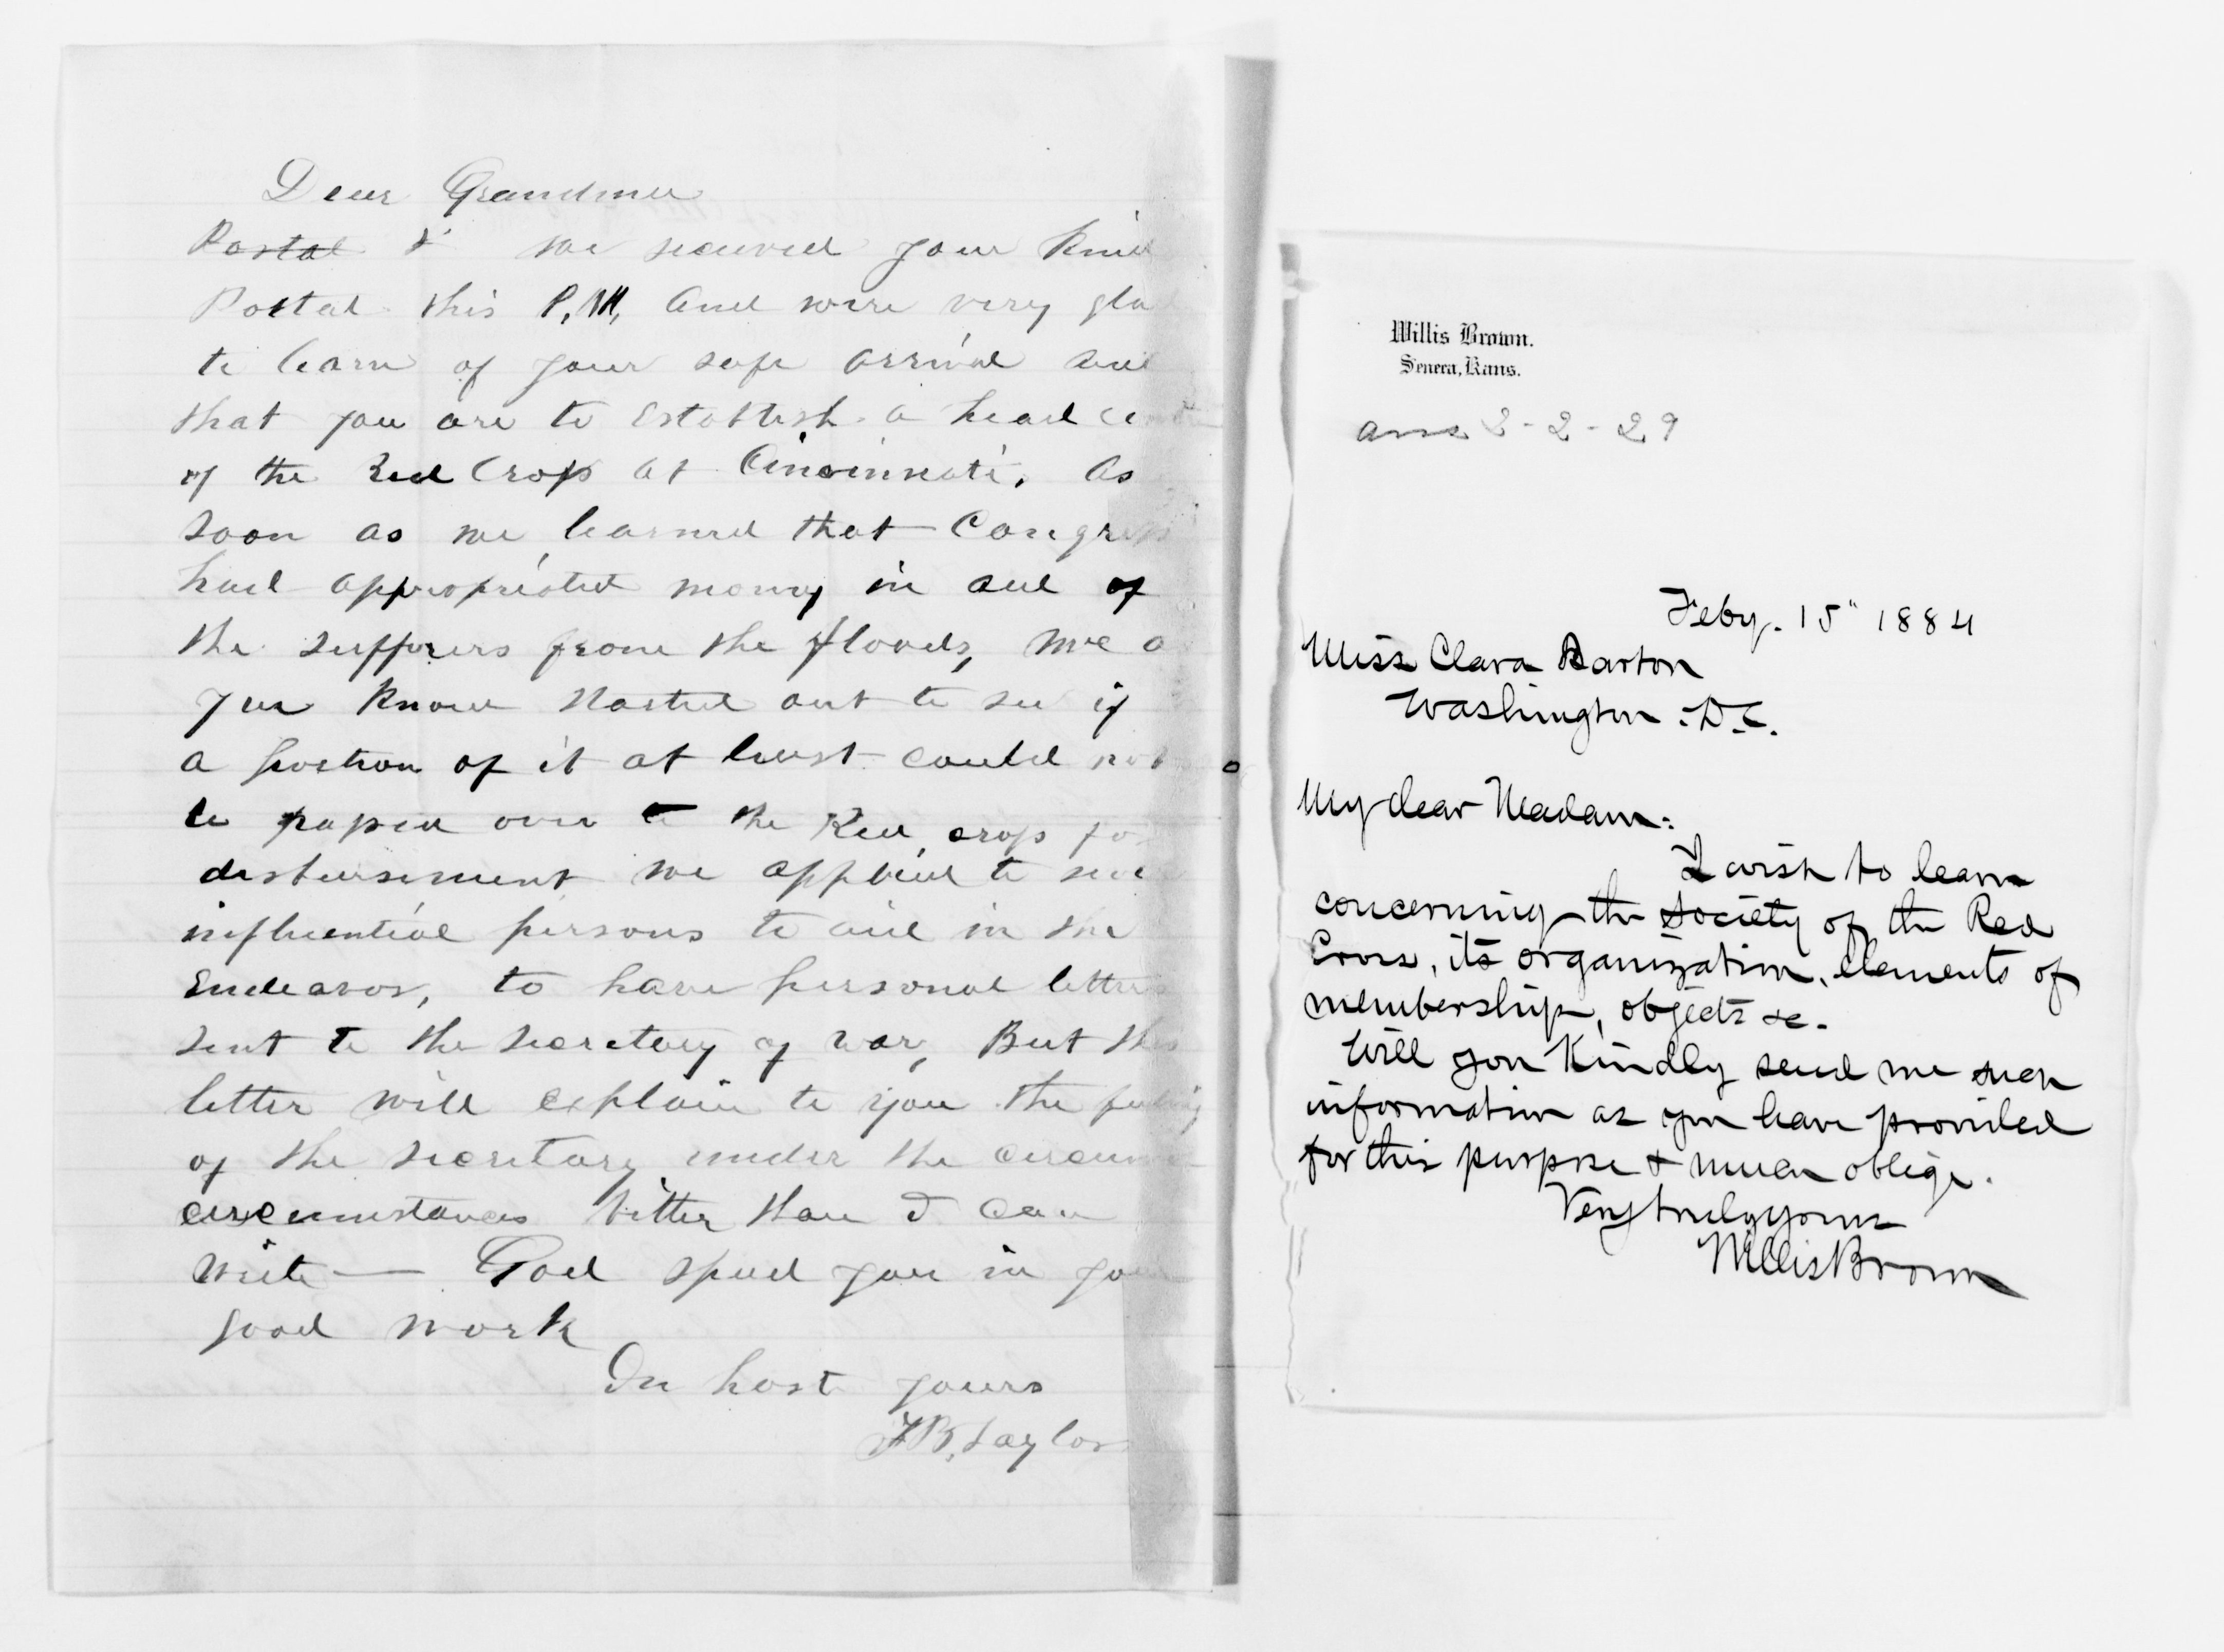 Dear Grandma
Postal & we received your Kind
Postal this P.M, and were very gla
to learn of your safe arrival and
that you are to Establish a head
of the Red Cross at Cincinnati. As
soon as we learned that Congress
had appropriated money in aid of
the sufferers from the floods, we a
you know started out to see if
a portion of it at least could not
be passed over to the Red cross for
disbursement we applied to
influential persons to aid in the
Endeavor, to have personal letters
sent to the Secretary of War, But this
letter will explain to you the feeling
of the Secretary under the circum
circumstances better than I can
write — God speed you in you
good work
In hast yours
F B. Taylor
Willis Brown.
Seneca, Kans.
ans 2-29
Feby. 15" 1884
Miss Clara Barton
Washington D.C.
My dear Madam:
I wish to learn
concerning the Society of the Red
Cross, its organization, elements of
membership, objects &c.
Will you Kindly send me such
information as you have provided
for this purpose & much oblige.
Very truly yours
Willis Brown